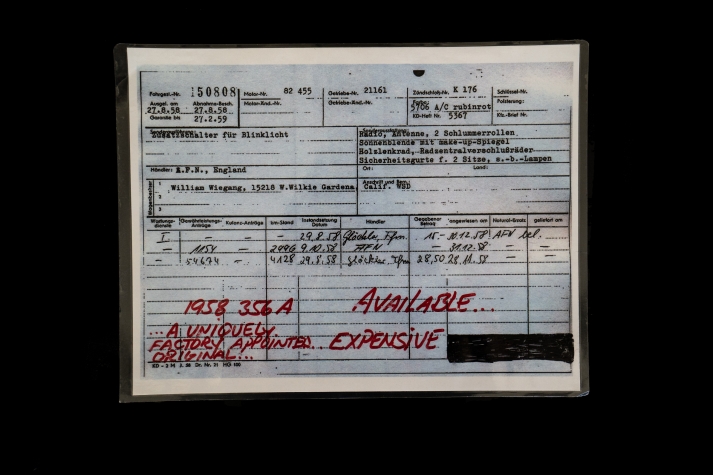 Fahrgest.-Nr. 150808 Motor-Nr. 82 455 Getriebe-Nr. 21161 Zündschloß-Nr. K 176 Schlüssel-Nr.
Ausgel. am Abnahme-Besch. Motor-Änd.-Nr. Getriebe-Änd.-Nr. Farbe: Polsterung:
27.8.58 27.8.58 5706 A/C rubinrot
Garantie bis 27.2.59 KD-Heft Nr. 5367 Kfz.-Brief Nr.
Zusatzschalter für Blinklicht
Radio, Antenne, 2 Schlummerrollen
Sonnenblende mit make-up-Spiegel
Holzlenkrad, Radzentralverschlußräder
Sicherheitsgurte f. 2 Sitze, s.-b.-Lampen
Händler: A.F.N., England Ort: Land:
Wagenbesitzer
Anschrift und Bem.:
1 William Wiegang, 15218 W.Wilkie Gardena, Calif. WSD
2
3
Wartungsdienste Gewährleistungs-Anträge Kulanz-Anträge km-Stand Instandsetzung Datum Händler Gegebener Betrag angewiesen am Natural-Ersatz geliefert am
I - - - 29.8.58 Glöckler, Ffm. 15.- 30.12.58 AFN bel.
- 1154 - 2896 9.10.58 AFN - 31.12.58
- 54674 - 4128 29.8.58 Glöckler, Ffm. 28,50 28.11.58
1958 356 A
... A UNIQUELY
FACTORY APPOINTED...
ORIGINAL...
AVAILABLE...
EXPENSIVE